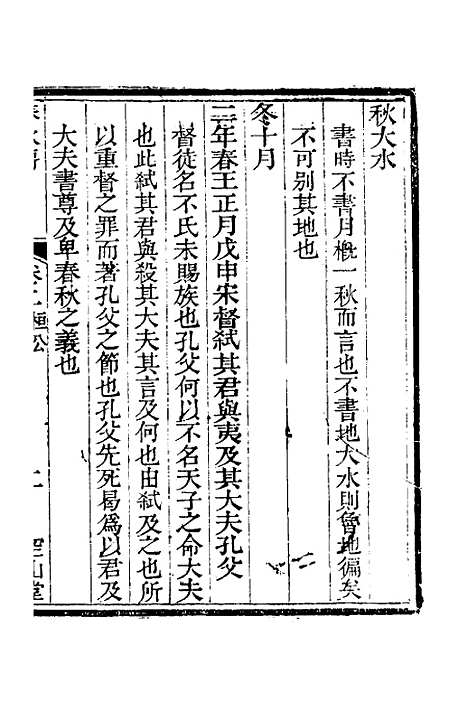 秋大水
書時不書月概一秋而言也不書地大水則魯地徧矣
不可別其地也
冬十月
二年春王正月戊申宋督弑其君與夷及其大夫孔父
督徒名不氏未賜族也孔父何以不名天子之命大夫
也此弑其君與殺其大夫其言及何也由弑及之也所
以重督之罪而著孔父之節也孔父先死曷爲以君及
大夫書尊及卑春秋之義也